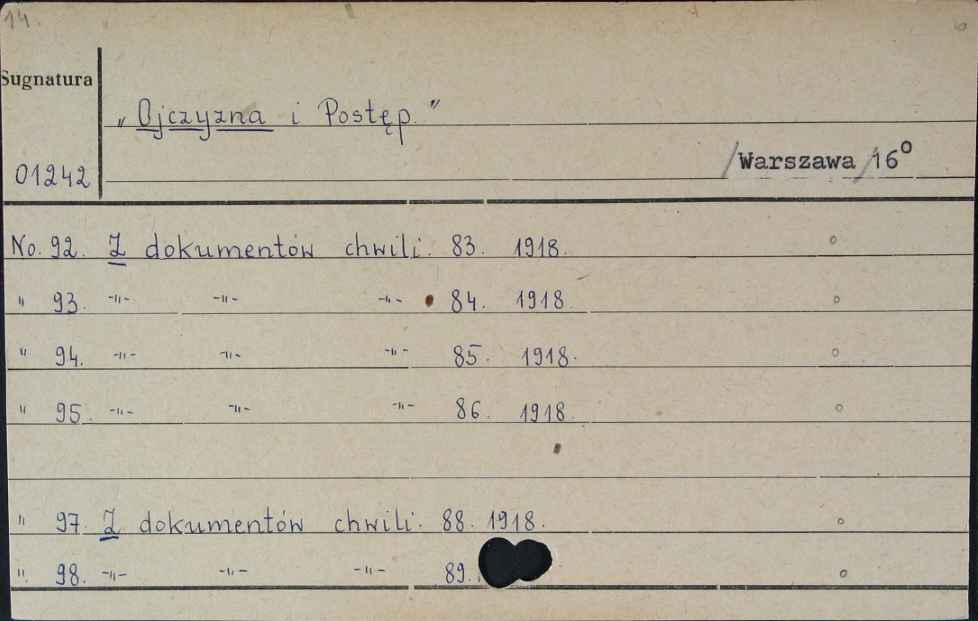 14.
6
Sugnatura
„Ojczyzna i Postęp."
01242
/Warszawa/16°
No. 92. Z dokumentów chwili. 83. 1918.
" 93. -"- -"- -"- 84. 1918
" 94. -"- -"- -"- 85. 1918.
" 95. -"- -"- -"- 86. 1918.
" 97. Z dokumentów chwili. 88. 1918.
" 98. -"- -"- -"- 89.